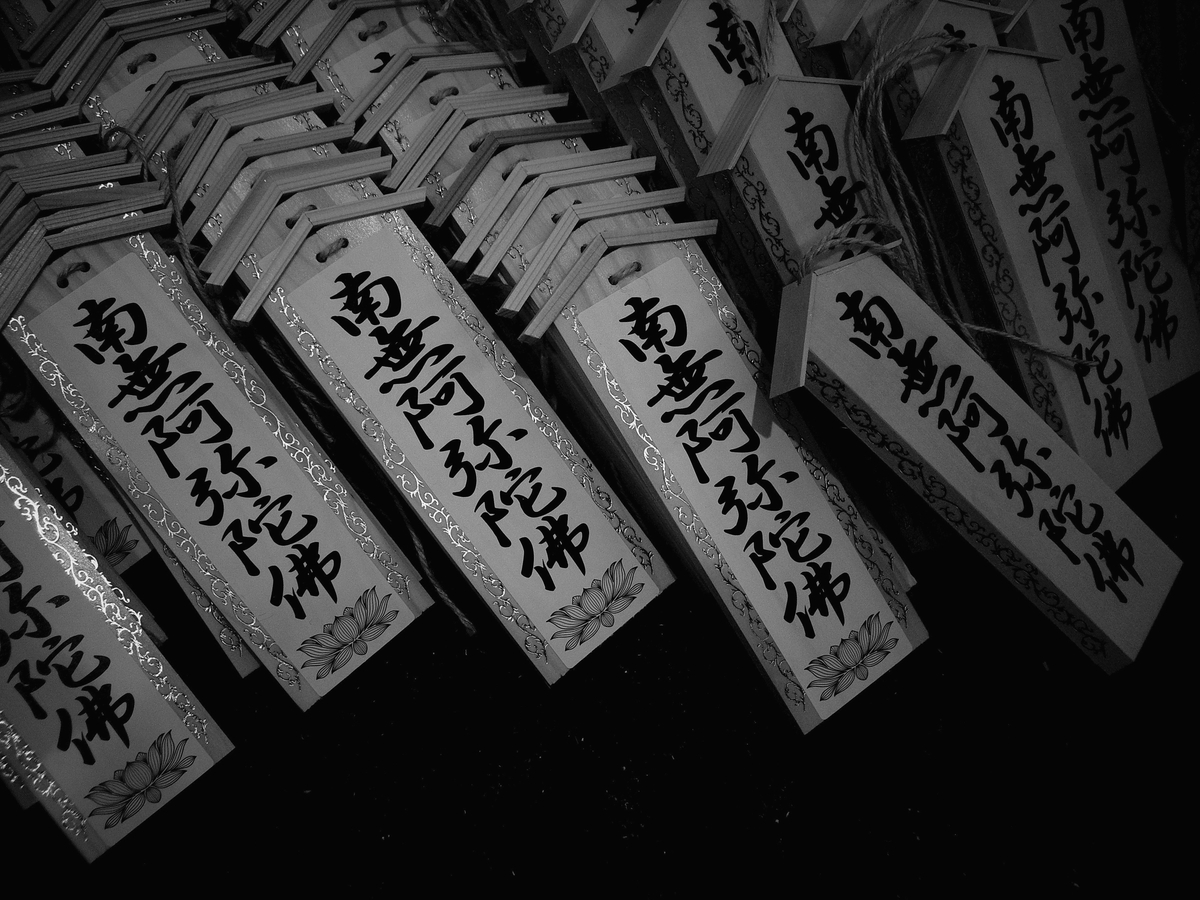 南無阿弥陀佛
南無阿弥陀佛
南無阿弥陀佛
南無阿弥陀佛
南無阿弥陀佛
南無阿弥陀佛
南無
南
弥陀佛
陀佛